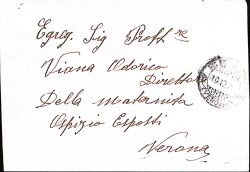 Egreg. Sig Proffre
Viana Odorico
Direttor
Della Maternità
Ospizio Esposti
Verona